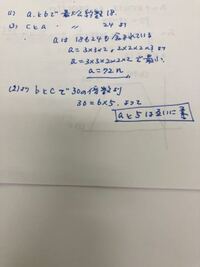 (1) a, bで最大公約数 18.
(3) cとa 〃 〃 24 より
aは 18も24も含まれている
a = 3×3×2, 2×2×2×3 より
a = 3×3×2×2×2 で最小.
a = 72n
(2)より bとcで30の倍数より
30 = 6×5. よって
aと5は互いに素